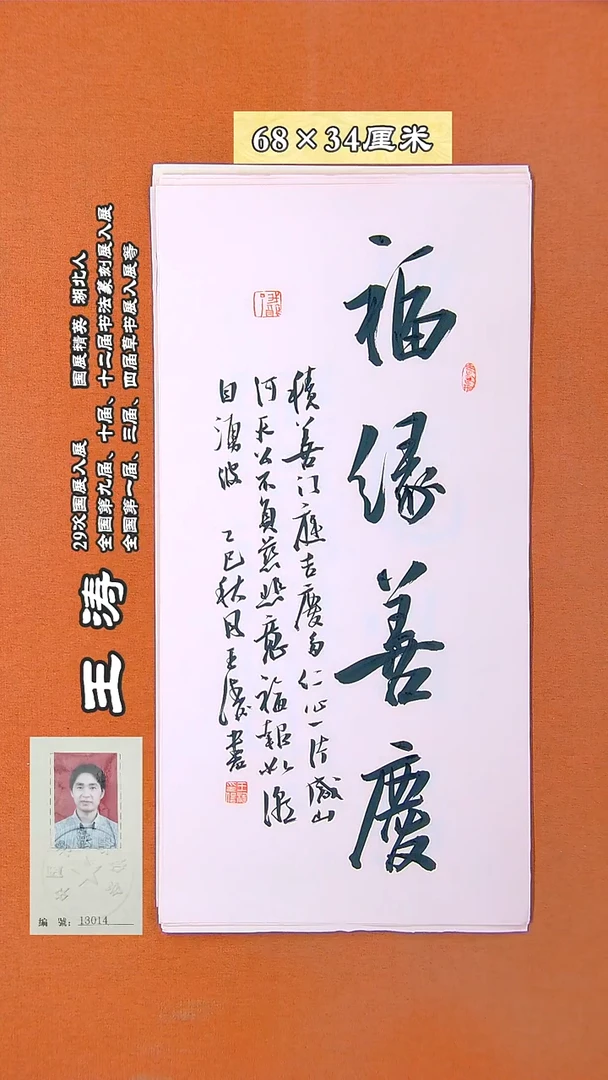 68×34厘米
福缘善慶
積善门庭吉慶多仁心一片感山
河天公不負慈悲意福報如潮
自湧波 乙巳秋月王濤書
29次国展入展 国展精英 湖北人
全国第九届、十届、十二届书法篆刻展入展
全国第一届、三届、四届草书展入展等
王涛
編 號: 13014